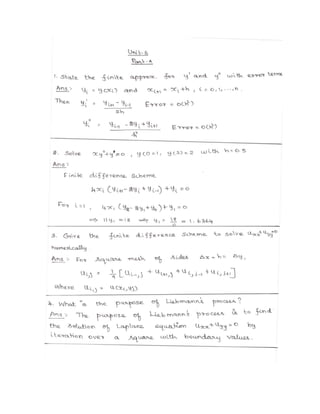 Unit-5
Part-A
1. State the finite approx. for y' and y'' with error terms
Ans: yi = y(xi) and xi+1 = xi+h, i = 0, 1, ... n.
Then yi' = (yi+1 - yi-1) / 2h Error = O(h²)
yi'' = (yi-1 - 2yi + yi+1) / h² Error = O(h²)
2. Solve xy''+y=0, y(1)=1, y(2)=2 with h=0.5
Ans:
Finite difference scheme
4xi (yi+1 - 2yi + yi-1) + yi = 0
For i=1, 4x1 (y2 - 2y1 + y0) + y1 = 0
⇒ 11y1 = 18 ⇒ y1 = 18/11 = 1.6364
3. Give the finite difference scheme to solve uxx+uyy=0
numerically.
Ans: For square mesh of sides Δx = h = Δy,
ui,j = 1/4 [ui-1,j + ui+1,j + ui,j-1 + ui,j+1]
where ui,j = u(xi, yj)
4. What is the purpose of Liebmann's process?
Ans: The purpose of Liebmann's process is to find
the solution of Laplace equation uxx+uyy=0 by
iteration over a square with boundary values.